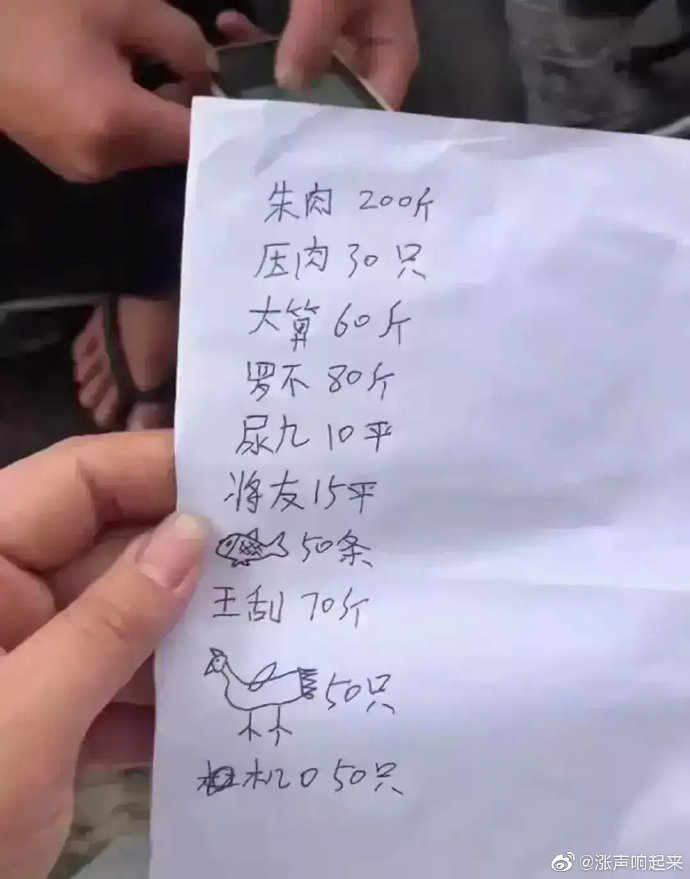 朱肉 200斤
压肉 30只
大算 60斤
罗不 80斤
尿九 10平
将友 15平
50条
王刮 70斤
50只
机 50只
@涨声响起来